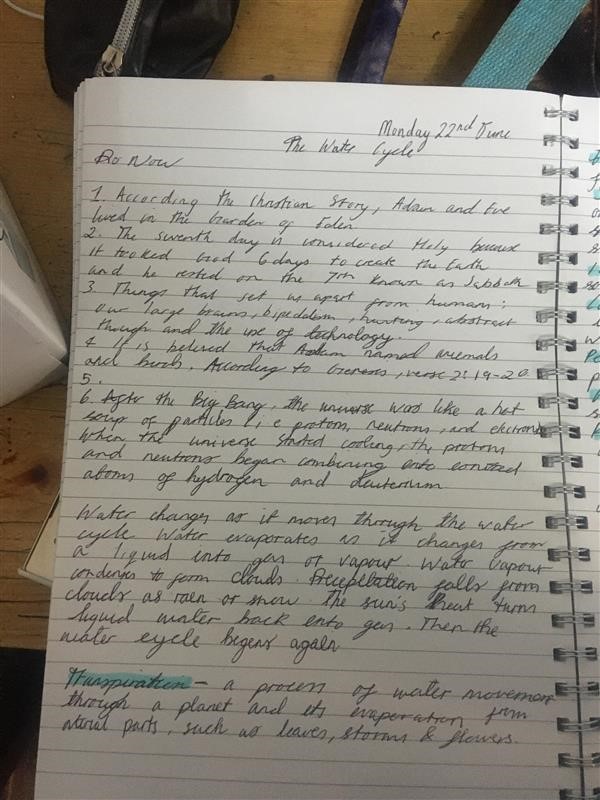 Monday 22nd June
The Water Cycle
Do Now
1. According the Christian Story, Adam and Eve
lived in the Garden of Eden
2. The seventh day is considered Holy because
it tooked God 6 days to create the Earth
and he rested on the 7th known as Sabbath
3. Things that set us apart from humans:
our large brains, bipedalism, hunting, abstract
though and the use of technology.
4 It is belived that Adam named animals
and birds. According to Genesis, verse 2:19-20
5.
6. After the Big Bang, the universe was like a hot
soup of particles i,e protons, neutrons, and electrons
When the universe started cooling, the protons
and neutrons began combining into ionized
atoms of hydrogen and deuterium
Water changes as it moves through the water
cycle Water evaporates as it changes from
a liquid into gas or vapour. Water vapour
condenses to form clouds. Precipitation falls from
clouds as rain or snow. The sun's heat turns
liquid water back into gas. Then the
water cycle begins again
Transpiration - a process of water movement
through a planet and its evaporation from
aterial parts, such as leaves, storms & flowers.